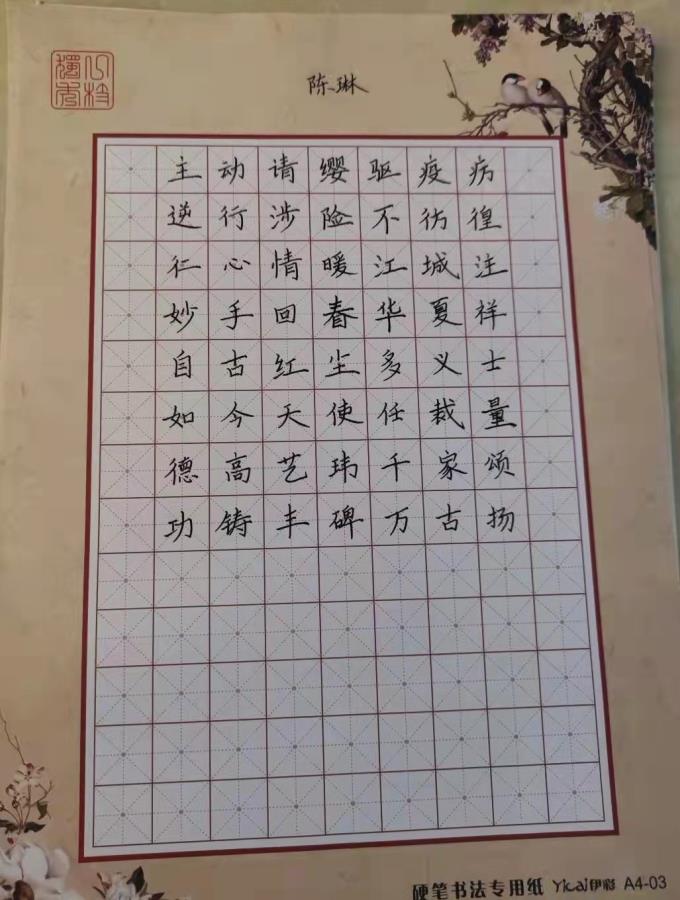 陈琳
主动请缨驱疫疠
逆行涉险不彷徨
仁心情暖江城注
妙手回春华夏祥
自古红尘多义士
如今天使任裁量
德高艺玮千家颂
功铸丰碑万古扬
硬笔书法专用纸 Yicai伊彩 A4-03